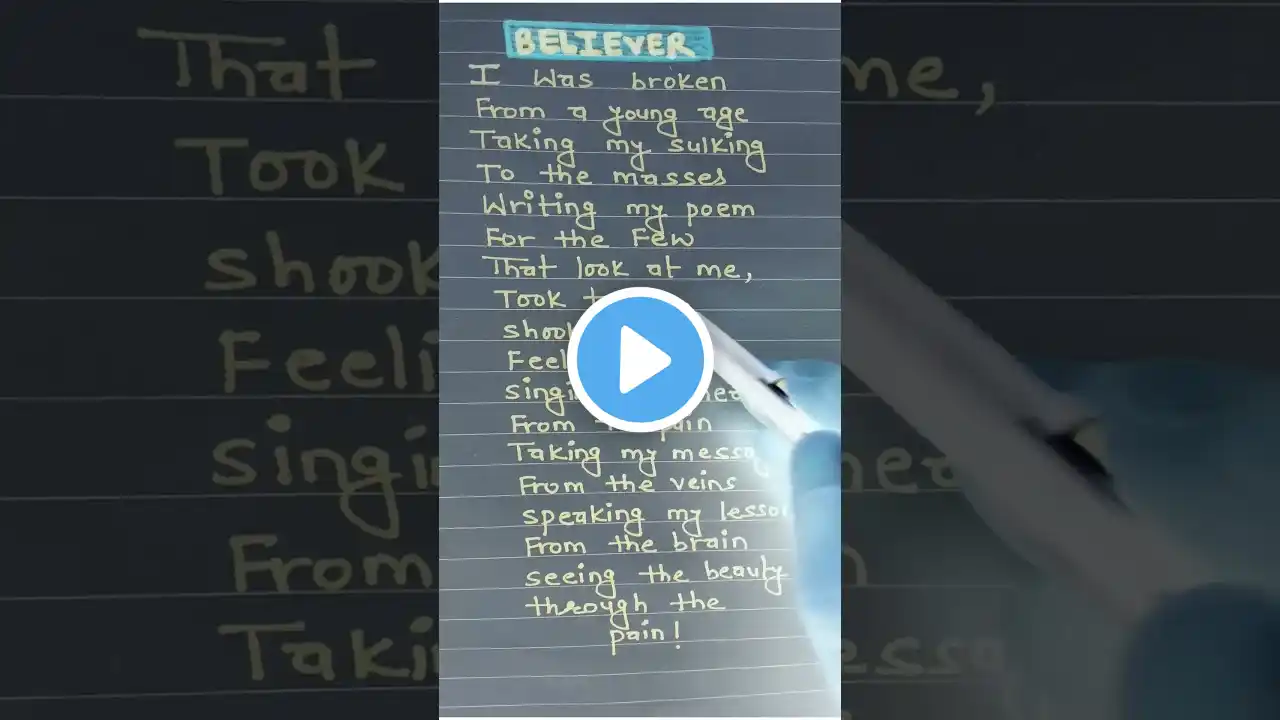 BELIEVER
I Was broken
From a young age
Taking my sulking
To the masses
Writing my poem
For the Few
That look at me,
Took
shook
From pain
Taking my
From the veins
speaking my
From the brain
seeing the beauty
through the
pain!